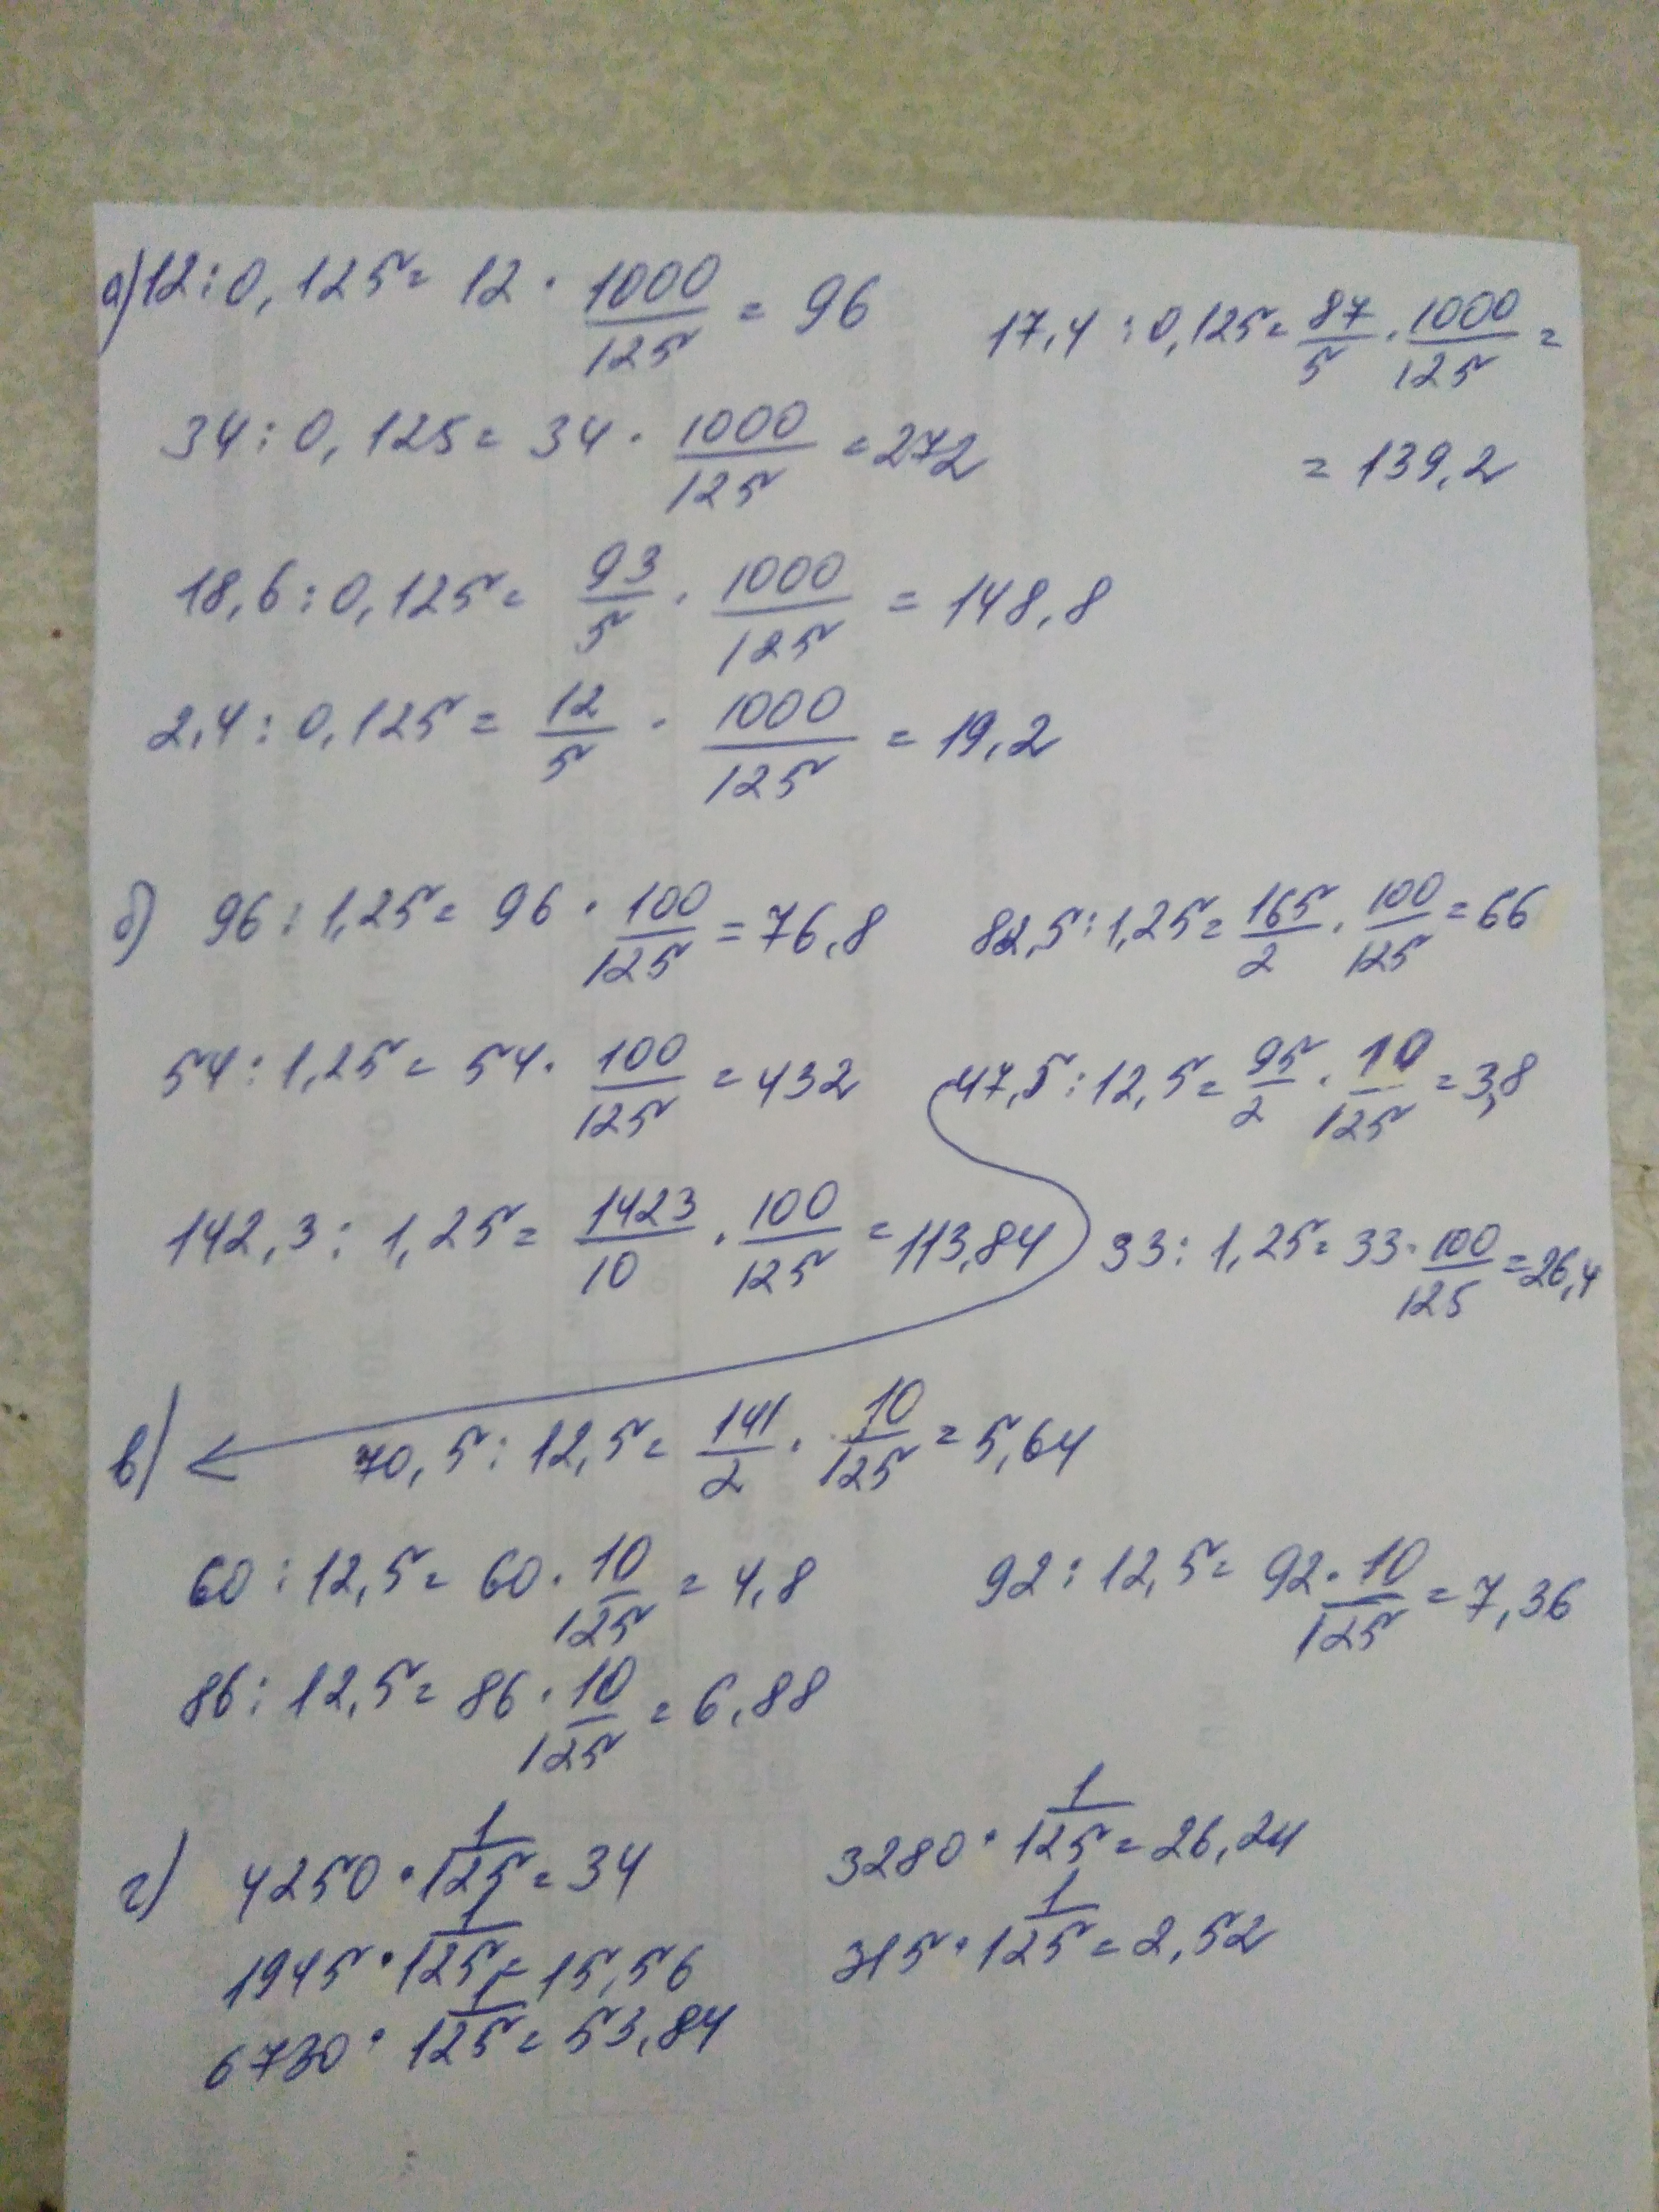 а) 12 : 0,125 = 12 · 1000/125 = 96
17,4 : 0,125 = 87/5 · 1000/125 =
= 139,2
34 : 0,125 = 34 · 1000/125 = 272
18,6 : 0,125 = 93/5 · 1000/125 = 148,8
2,4 : 0,125 = 12/5 · 1000/125 = 19,2
б) 96 : 1,25 = 96 · 100/125 = 76,8
82,5 : 1,25 = 165/2 · 100/125 = 66
54 : 1,25 = 54 · 100/125 = 432
47,5 : 12,5 = 95/2 · 10/125 = 3,8
142,3 : 1,25 = 1423/10 · 100/125 = 113,84
33 : 1,25 = 33 · 100/125 = 26,4
в) 70,5 : 12,5 = 141/2 · 10/125 = 5,64
60 : 12,5 = 60 · 10/125 = 4,8
92 : 12,5 = 92 · 10/125 = 7,36
86 : 12,5 = 86 · 10/125 = 6,88
г) 4250 · 1/125 = 34
3280 · 1/125 = 26,24
1945 · 1/125 = 15,56
315 · 1/125 = 2,52
6730 · 1/125 = 53,84